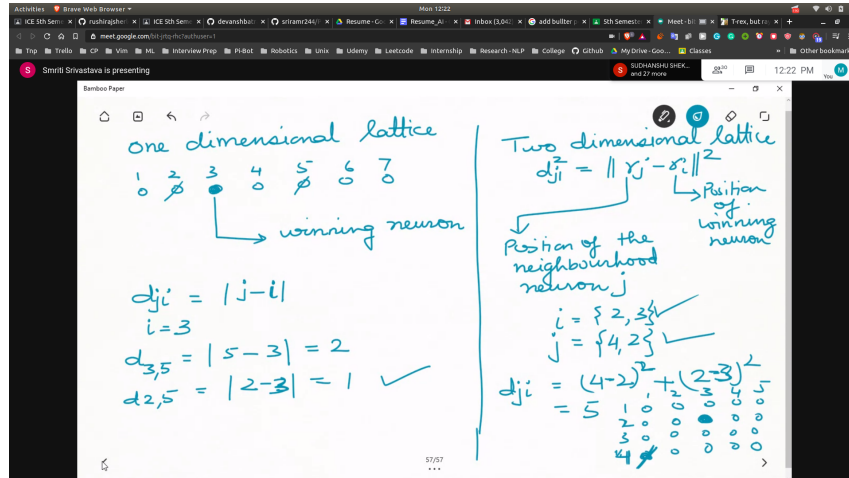 Activities Brave Web Browser Mon 12:22
ICE 5th Seme rushirajsher ICE 5th Seme devanshbat sriramr244/ Resume - Go Resume_AI Inbox (3,042) add bullter p 5th Semeste Meet - bit T-rex, but ra
meet.google.com/bit-jrtq-rhc?authuser=1
Tnp Trello CP Vim ML Interview Prep Pi-Bot Robotics Unix Udemy Leetcode Internship Research - NLP College Github My Drive - Goo... Classes Other bookmark
S Smriti Srivastava is presenting
S SUDHANSHU SHEK...
and 27 more
30
12:22 PM You M
Bamboo Paper
one dimensional lattice
1 2 3 4 5 6 7
winning neuron
dji = |j-i|
i = 3
d3,5 = |5-3| = 2
d2,5 = |2-3| = 1
Two dimensional lattice
dji² = || rj - ri ||²
Position
of
winning
neuron
Position of the
neighbourhood
neuron j
i = {2,3}
j = {4,2}
dji = (4-2)² + (2-3)²
= 5
1 2 3 4 5
1 0 0 0 0 0
2 0 0 0 0
3 0 0 0 0 0
4 0 0 0 0
57/57